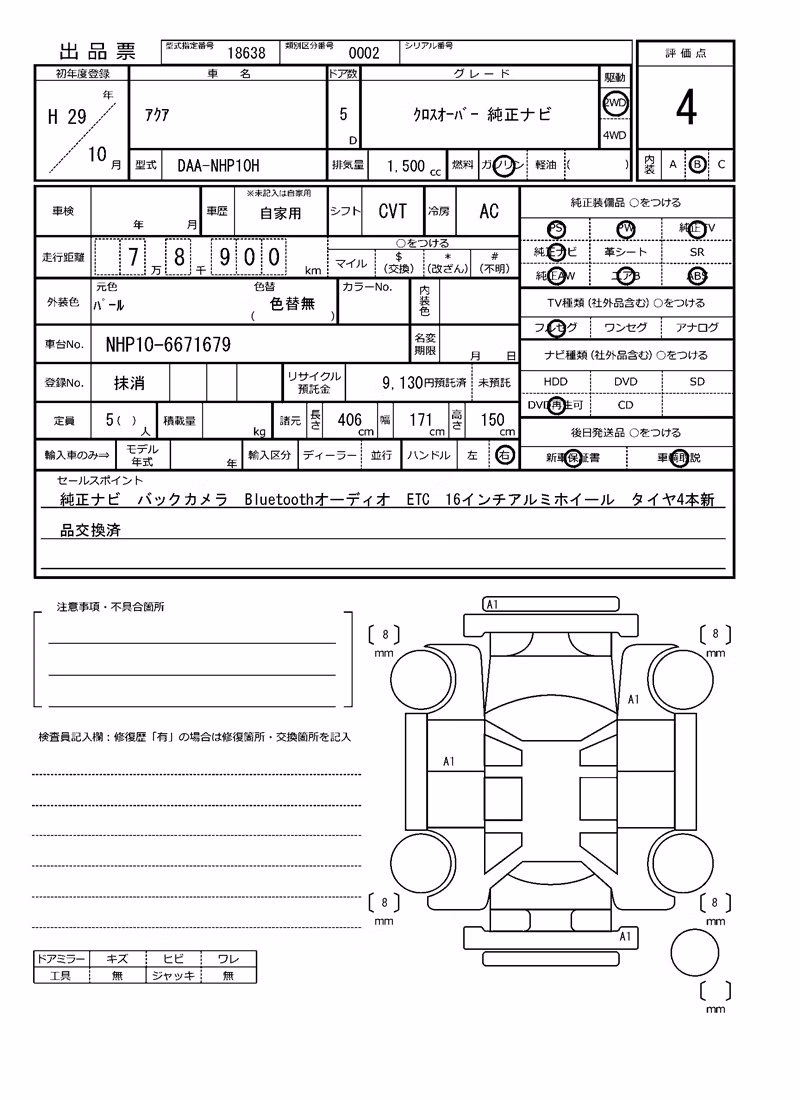 出品票 型式指定番号 18638 類別区分番号 0002 シリアル番号
評価点
4
内装 A B C
初年度登録 車名 ドア数 グレード 駆動
H 29 年 10 月 アクア 5 D クロスオーバー 純正ナビ 2WD
4WD
型式 DAA-NHP10H 排気量 1,500 cc 燃料 ガソリン 軽油 ( )
車検 年 月 車歴 ※未記入は自家用 自家用 シフト CVT 冷房 AC
走行距離 7 万 8 千 9 0 0 km
○をつける
マイル $(交換) *(改ざん) #(不明)
外装色 元色 パール 色替 ( 色替無 ) カラーNo. 内装色
車台No. NHP10-6671679 名変期限 月 日
登録No. 抹消 リサイクル預託金 9,130円預託済 未預託
定員 5( )人 積載量 kg 諸元 長さ 406 cm 幅 171 cm 高さ 150 cm
輸入車のみ⇒ モデル年式 年 輸入区分 ディーラー 並行 ハンドル 左 右
純正装備品 ○をつける
PS PW 純正TV
純正ナビ 革シート SR
純正AW エアB ABS
TV種類(社外品含む)○をつける
フルセグ ワンセグ アナログ
ナビ種類(社外品含む)○をつける
HDD DVD SD
DVD再生可 CD
後日発送品 ○をつける
新車保証書 車輌取説
セールスポイント
純正ナビ バックカメラ Bluetoothオーディオ ETC 16インチアルミホイール タイヤ4本新
品交換済
注意事項・不具合箇所
検査員記入欄：修復歴「有」の場合は修復箇所・交換箇所を記入
ドアミラー キズ ヒビ ワレ
工具 無 ジャッキ 無
A1
[ 8 ] mm
[ 8 ] mm
A1
A1
[ 8 ] mm
[ 8 ] mm
A1
[ ] mm